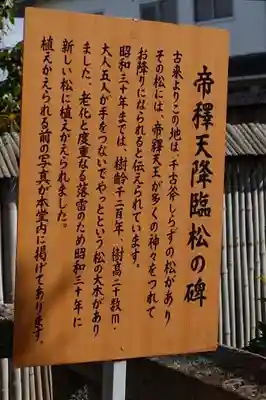 帝釋天降臨松の碑
古来よりこの地は、千古斧しらずの松があり
その松には、帝釋天王が多くの神々をつれて
お降りになられると伝えられています。
昭和三十年までは、樹齢千二百年、樹高二十数m・
大人五人が手をつないでやっとという松の大木があり
ました。老化と度重なる落雷のため昭和三十年に
新しい松に植えかえられました。
植えかえられる前の写真が本堂内に掲げてあります。